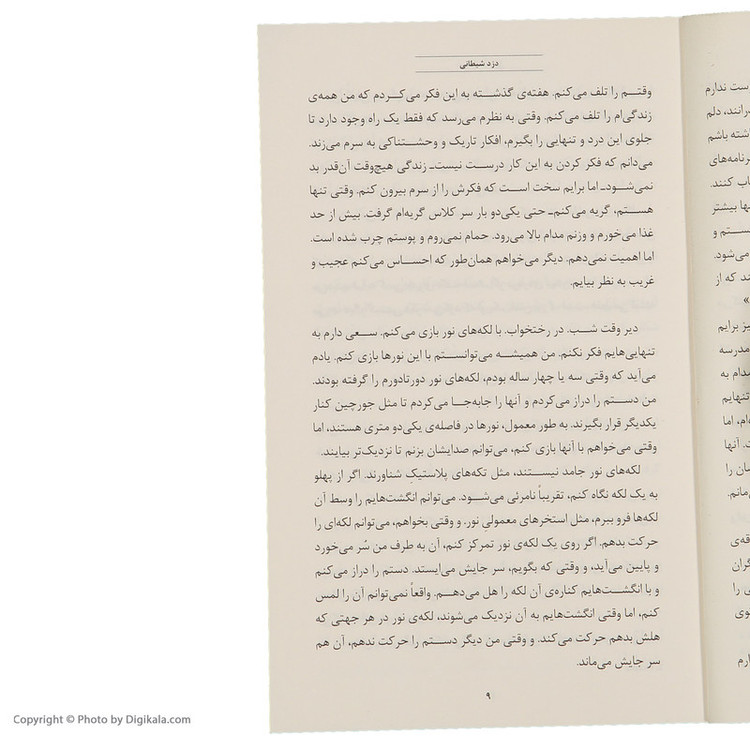 دزد شیطانی
وقتم را تلف می‌کنم. هفته‌ی گذشته به این فکر می‌کردم که من همه‌ی
زندگی‌ام را تلف می‌کنم. وقتی به نظرم می‌رسد که فقط یک راه وجود دارد تا
جلوی این درد و تنهایی را بگیرم، افکار تاریک و وحشتناکی به سرم می‌زند.
می‌دانم که فکر کردن به این کار درست نیست- زندگی هیچ‌وقت آن‌قدر بد
نمی‌شود- اما برایم سخت است که فکرش را از سرم بیرون کنم. وقتی تنها
هستم، گریه می‌کنم- حتی یکی‌دو بار سر کلاس گریه‌ام گرفت. بیش از حد
غذا می‌خورم و وزنم مدام بالا می‌رود. حمام نمی‌روم و پوستم چرب شده است.
اما اهمیت نمی‌دهم. دیگر می‌خواهم همان‌طور که احساس می‌کنم عجیب و
غریب به نظر بیایم.
دیر وقت شب. در رختخواب. با لکه‌های نور بازی می‌کنم. سعی دارم به
تنهایی‌هایم فکر نکنم. من همیشه می‌توانستم با این نورها بازی کنم. یادم
می‌آید که وقتی سه یا چهار ساله بودم، لکه‌های نور دورتادورم را گرفته بودند.
من دستم را دراز می‌کردم و آنها را جابه‌جا می‌کردم تا مثل جورچین کنار
یکدیگر قرار بگیرند. به طور معمول، نورها در فاصله‌ی یکی‌دو متری هستند، اما
وقتی می‌خواهم با آنها بازی کنم، می‌توانم صدایشان بزنم تا نزدیک‌تر بیایند.
لکه‌های نور جامد نیستند، مثل تکه‌های پلاستیکِ شناورند. اگر از پهلو
به یک لکه نگاه کنم، تقریباً نامرئی می‌شود. می‌توانم انگشت‌هایم را وسط آن
لکه‌ها فرو ببرم، مثل استخرهای معمولیِ نور. و وقتی بخواهم، می‌توانم لکه‌ای را
حرکت بدهم. اگر روی یک لکه‌ی نور تمرکز کنم، آن به طرف من سُر می‌خورد
و پایین می‌آید، و وقتی که بگویم، سر جایش می‌ایستد. دستم را دراز می‌کنم
و با انگشت‌هایم کناره‌ی آن لکه را هل می‌دهم. واقعاً نمی‌توانم آن را لمس
کنم، اما وقتی انگشت‌هایم به آن نزدیک می‌شوند، لکه‌ی نور در هر جهتی که
هلش بدهم حرکت می‌کند. و وقتی من دیگر دستم را حرکت ندهم، آن هم
سر جایش می‌ماند.
۹
Copyright © Photo by Digikala.com